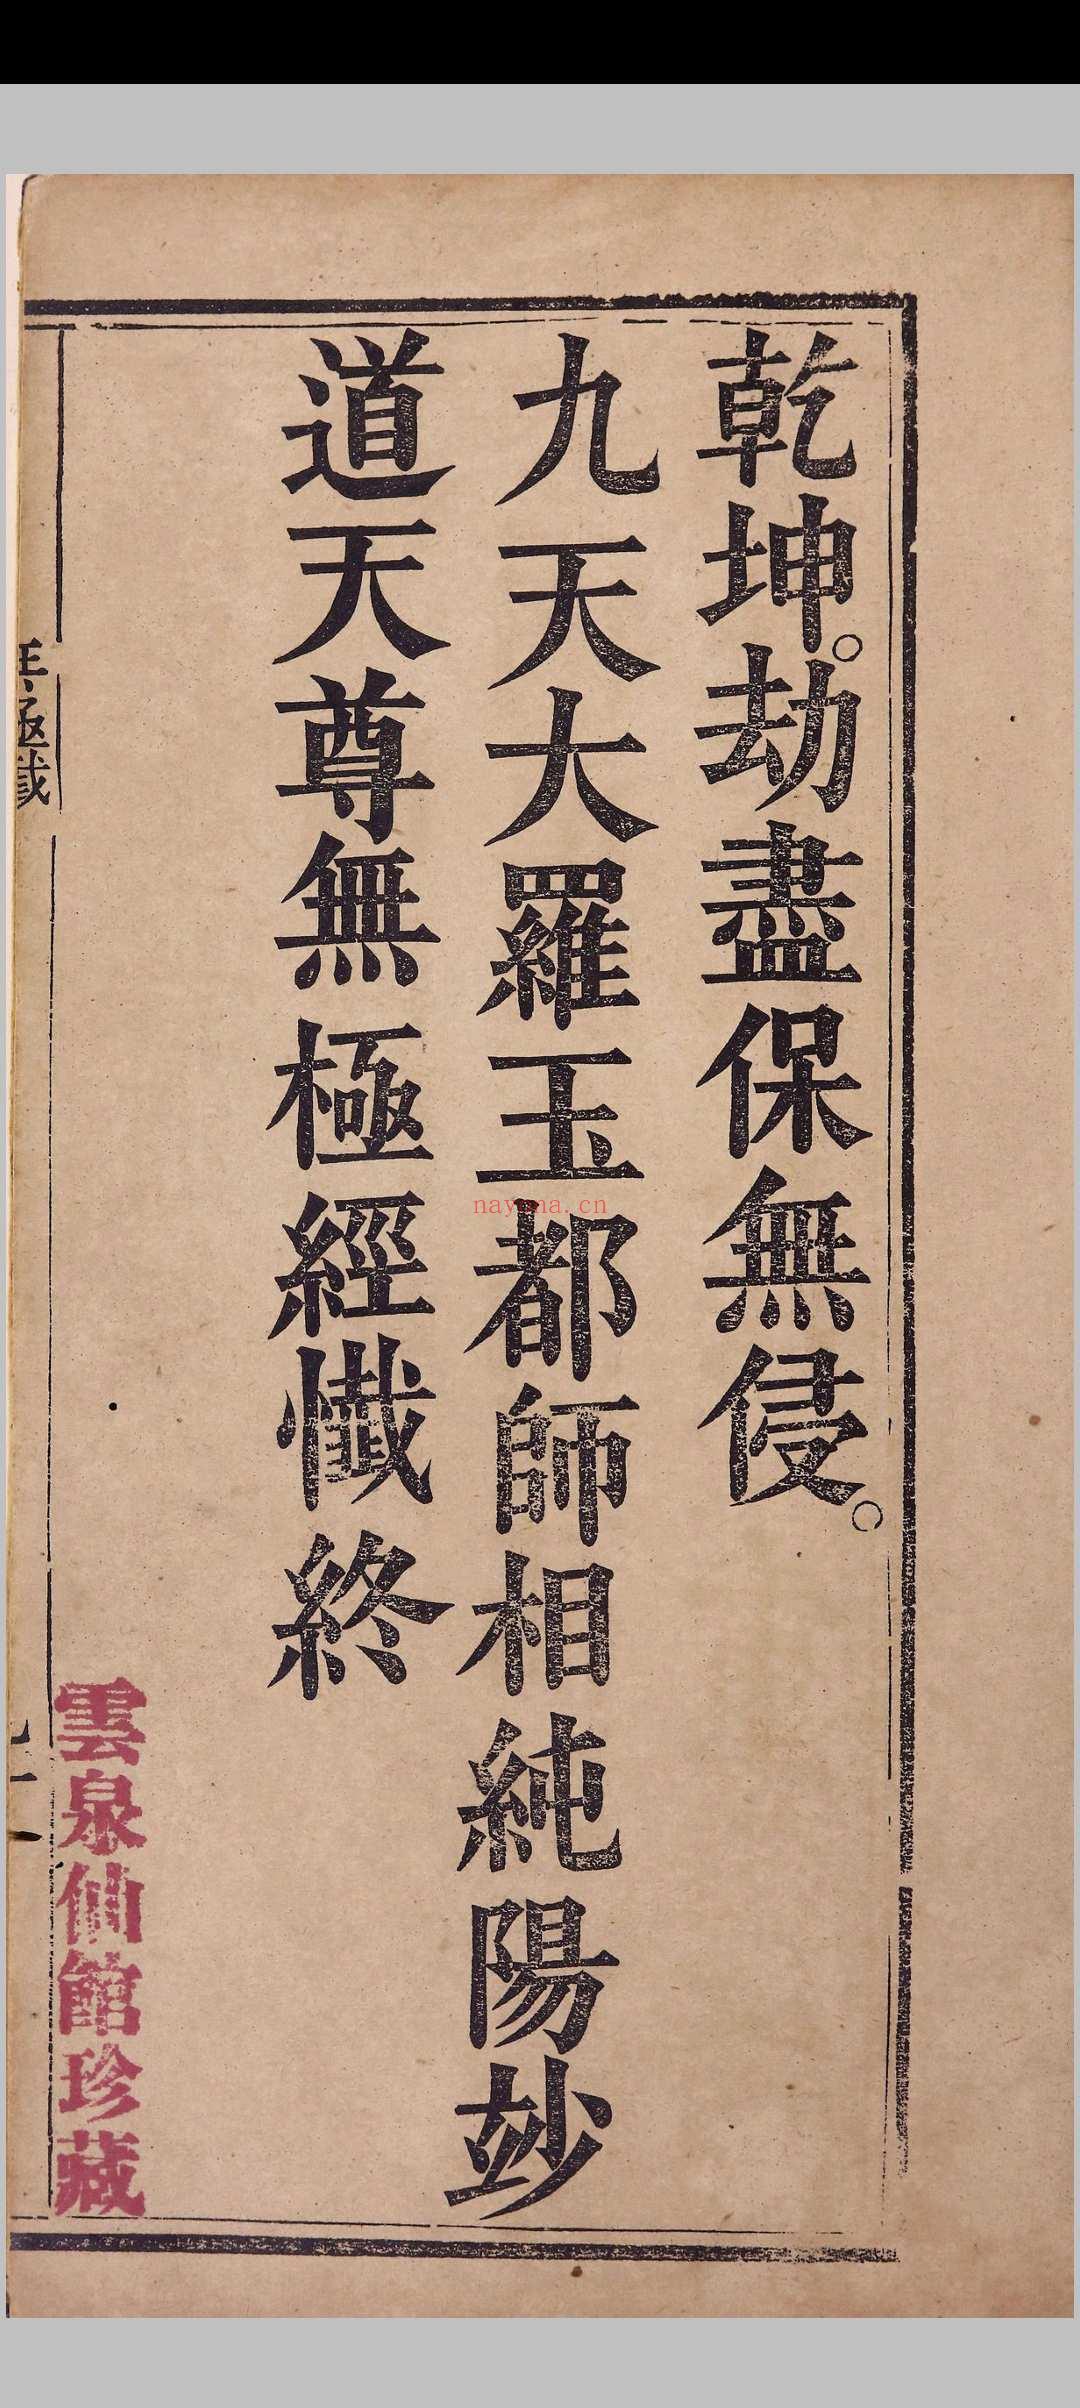 乾坤。劫盡保無侵。
九天大羅玉都師相純陽玅
道天尊無極經懺終
雲泉仙館珍藏
nayona.cn